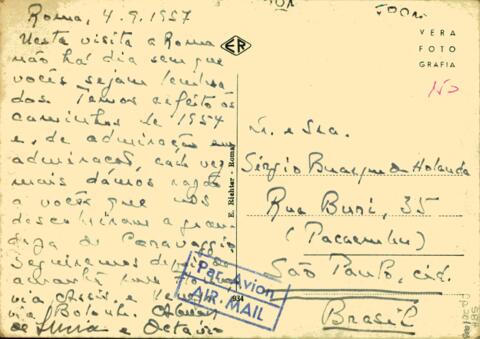 Roma, 4.9.1957
Nesta visita a Roma
não há dia sem que
vocês sejam lembra
dos. Temos refeito os
caminhos de 1954
e, de admiração em
admiração, cada vez
mais damos razão
a vocês que nos
descobriram a gran
deza de Caravaggio
Seguiremos
via Assis e
via Bolonha.
de Lucia e Octavio
ER
E. Richter - Roma
934
VERA
FOTO
GRAFIA
Sr. e Sra.
Sérgio Buarque de Holanda
Rua Buri, 35
(Pacaembu)
São Paulo, cid.
Brasil
Par Avion
AIR MAIL